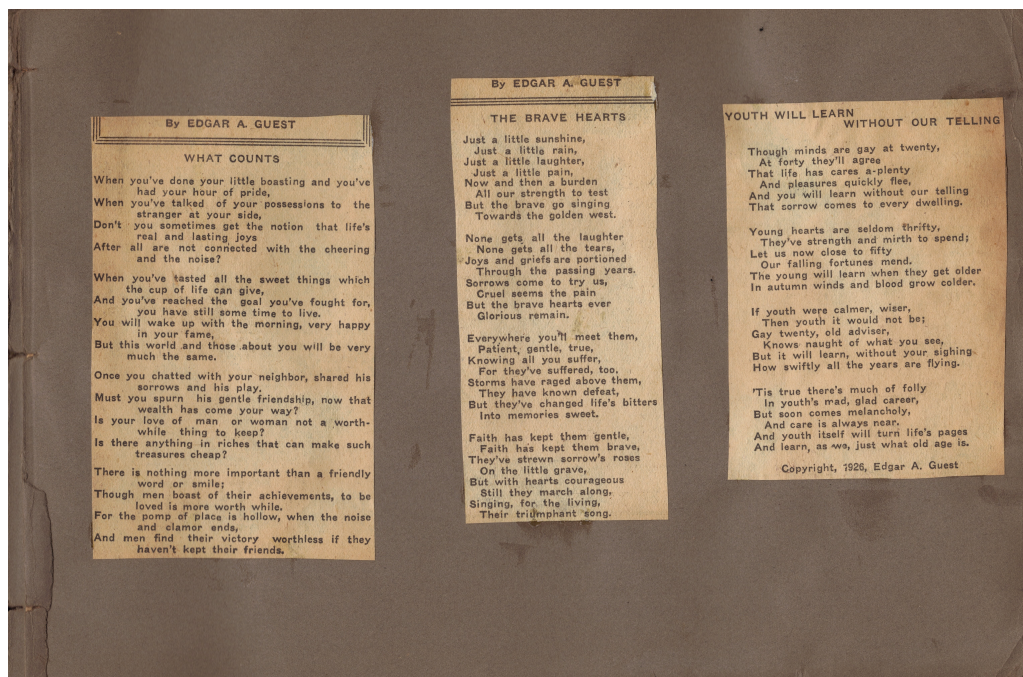 By EDGAR A. GUEST
WHAT COUNTS
When you've done your little boasting and you've
had your hour of pride,
When you've talked of your possessions to the
stranger at your side,
Don't you sometimes get the notion that life's
real and lasting joys
After all are not connected with the cheering
and the noise?
When you've tasted all the sweet things which
the cup of life can give,
And you've reached the goal you've fought for,
you have still some time to live.
You will wake up with the morning, very happy
in your fame,
But this world and those about you will be very
much the same.
Once you chatted with your neighbor, shared his
sorrows and his play.
Must you spurn his gentle friendship, now that
wealth has come your way?
Is your love of man or woman not a worth-
while thing to keep?
Is there anything in riches that can make such
treasures cheap?
There is nothing more important than a friendly
word or smile;
Though men boast of their achievements, to be
loved is more worth while.
For the pomp of place is hollow, when the noise
and clamor ends,
And men find their victory worthless if they
haven't kept their friends.
By EDGAR A. GUEST
THE BRAVE HEARTS
Just a little sunshine,
Just a little rain,
Just a little laughter,
Just a little pain,
Now and then a burden
All our strength to test
But the brave go singing
Towards the golden west.
None gets all the laughter
None gets all the tears,
Joys and griefs are portioned
Through the passing years.
Sorrows come to try us,
Cruel seems the pain
But the brave hearts ever
Glorious remain.
Everywhere you'll meet them,
Patient, gentle, true,
Knowing all you suffer,
For they've suffered, too.
Storms have raged above them,
They have known defeat,
But they've changed life's bitters
Into memories sweet.
Faith has kept them gentle,
Faith has kept them brave,
They've strewn sorrow's roses
On the little grave,
But with hearts courageous
Still they march along,
Singing, for the living,
Their triumphant song.
YOUTH WILL LEARN
WITHOUT OUR TELLING
Though minds are gay at twenty,
At forty they'll agree
That life has cares a-plenty
And pleasures quickly flee,
And you will learn without our telling
That sorrow comes to every dwelling.
Young hearts are seldom thrifty,
They've strength and mirth to spend;
Let us now close to fifty
Our falling fortunes mend.
The young will learn when they get older
In autumn winds and blood grow colder.
If youth were calmer, wiser,
Then youth it would not be;
Gay twenty, old adviser,
Knows naught of what you see,
But it will learn, without your sighing
How swiftly all the years are flying.
'Tis true there's much of folly
In youth's mad, glad career,
But soon comes melancholy,
And care is always near.
And youth itself will turn life's pages
And learn, as we, just what old age is.
Copyright, 1926, Edgar A. Guest